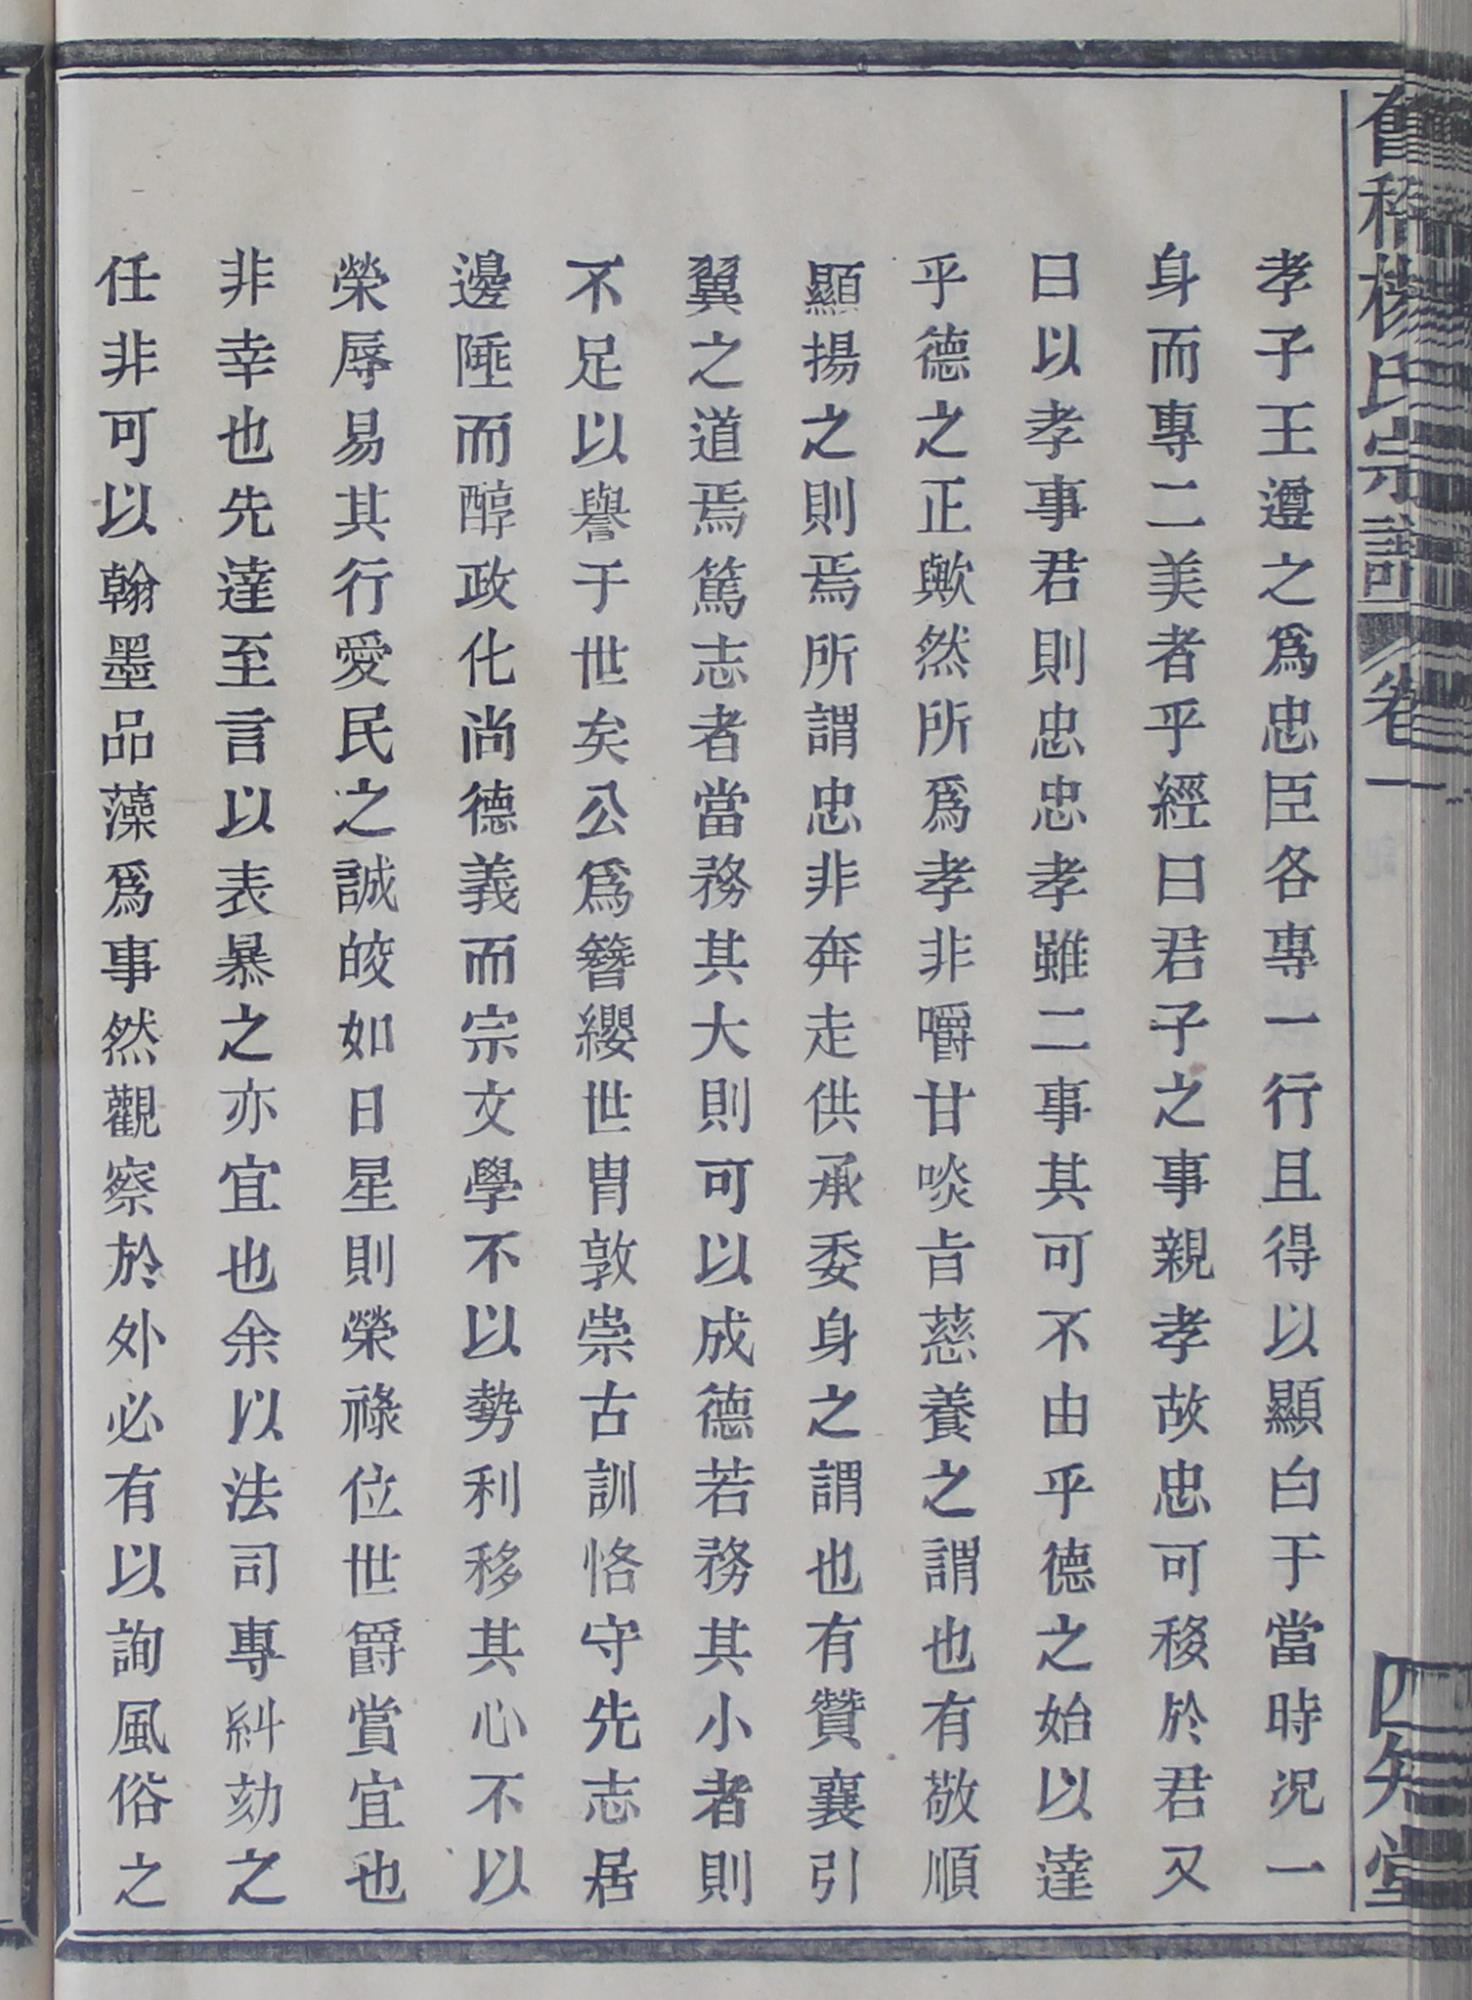 舊稱楊氏宗譜 卷一 四知堂
孝子王遵之爲忠臣各專一行且得以顯白于當時况一
身而專二美者乎經曰君子之事親孝故忠可移於君又
曰以孝事君則忠忠孝雖二事其可不由乎德之始以達
乎德之正歟然所爲孝非嚼甘啖旨慈養之謂也有敬順
顯揚之則焉所謂忠非奔走供承委身之謂也有贊襄引
翼之道焉篤志者當務其大則可以成德若務其小者則
不足以譽于世矣公爲簪纓世胄敦崇古訓恪守先志居
邊陲而醇政化尚德義而宗文學不以勢利移其心不以
榮辱易其行愛民之誠皎如日星則榮祿位世爵賞宜也
非幸也先達至言以表暴之亦宜也余以法司專糾劾之
任非可以翰墨品藻爲事然觀察於外必有以詢風俗之